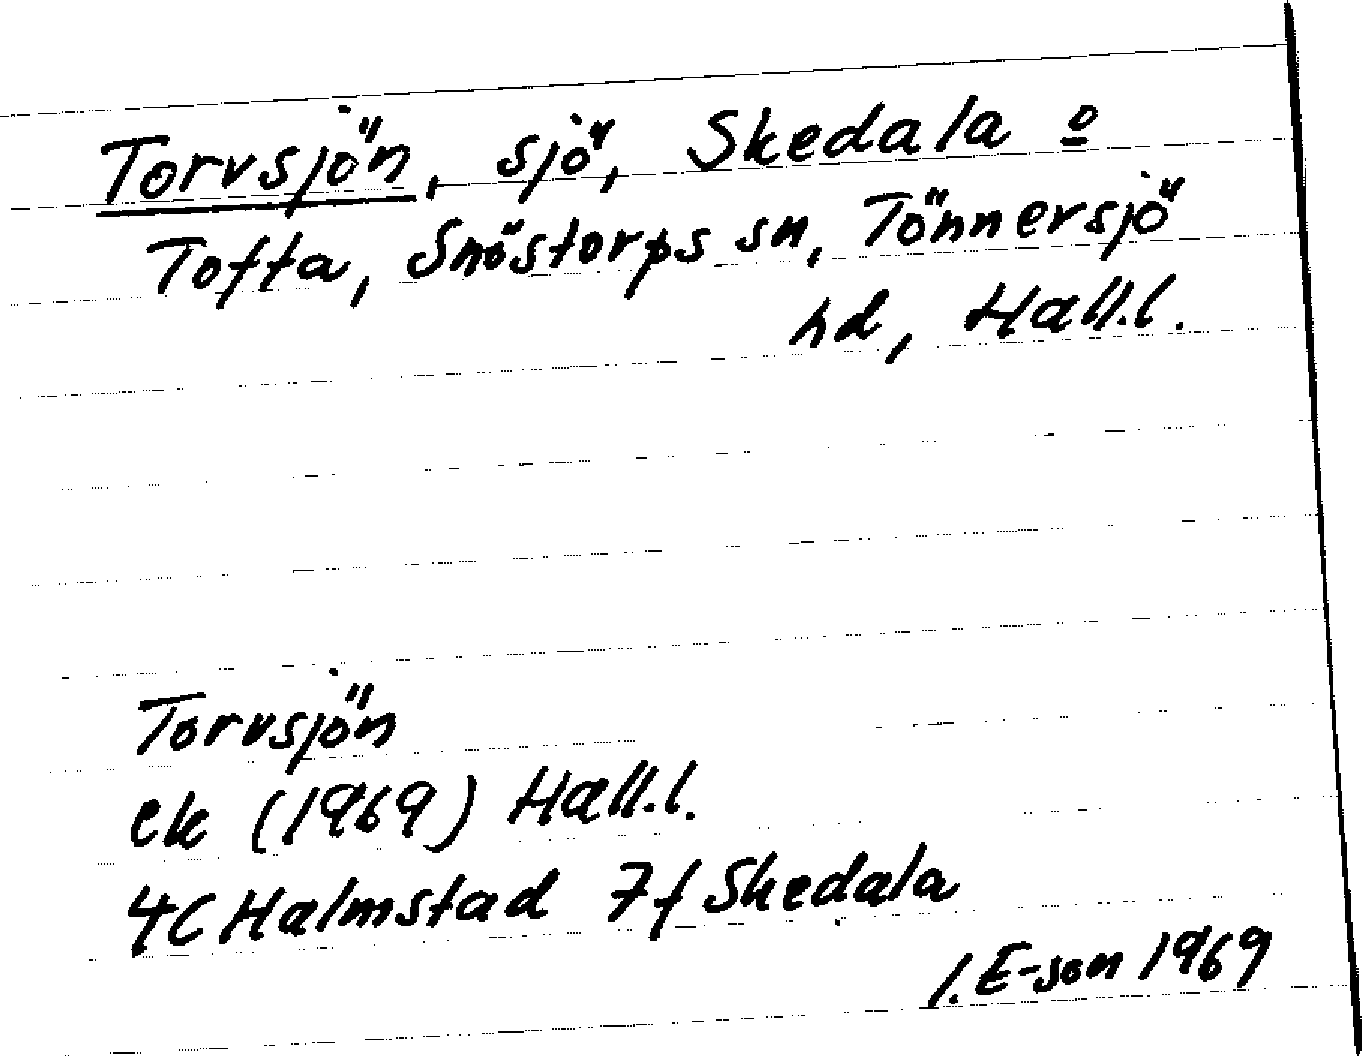 Torvsjön, sjö, Skedala o
Tofta, Snöstorps sn, Tönnersjö
hd, Hall.l.
Torvsjön
ek (1969) Hall.l.
4C Halmstad 7f Skedala
I. E-son 1969